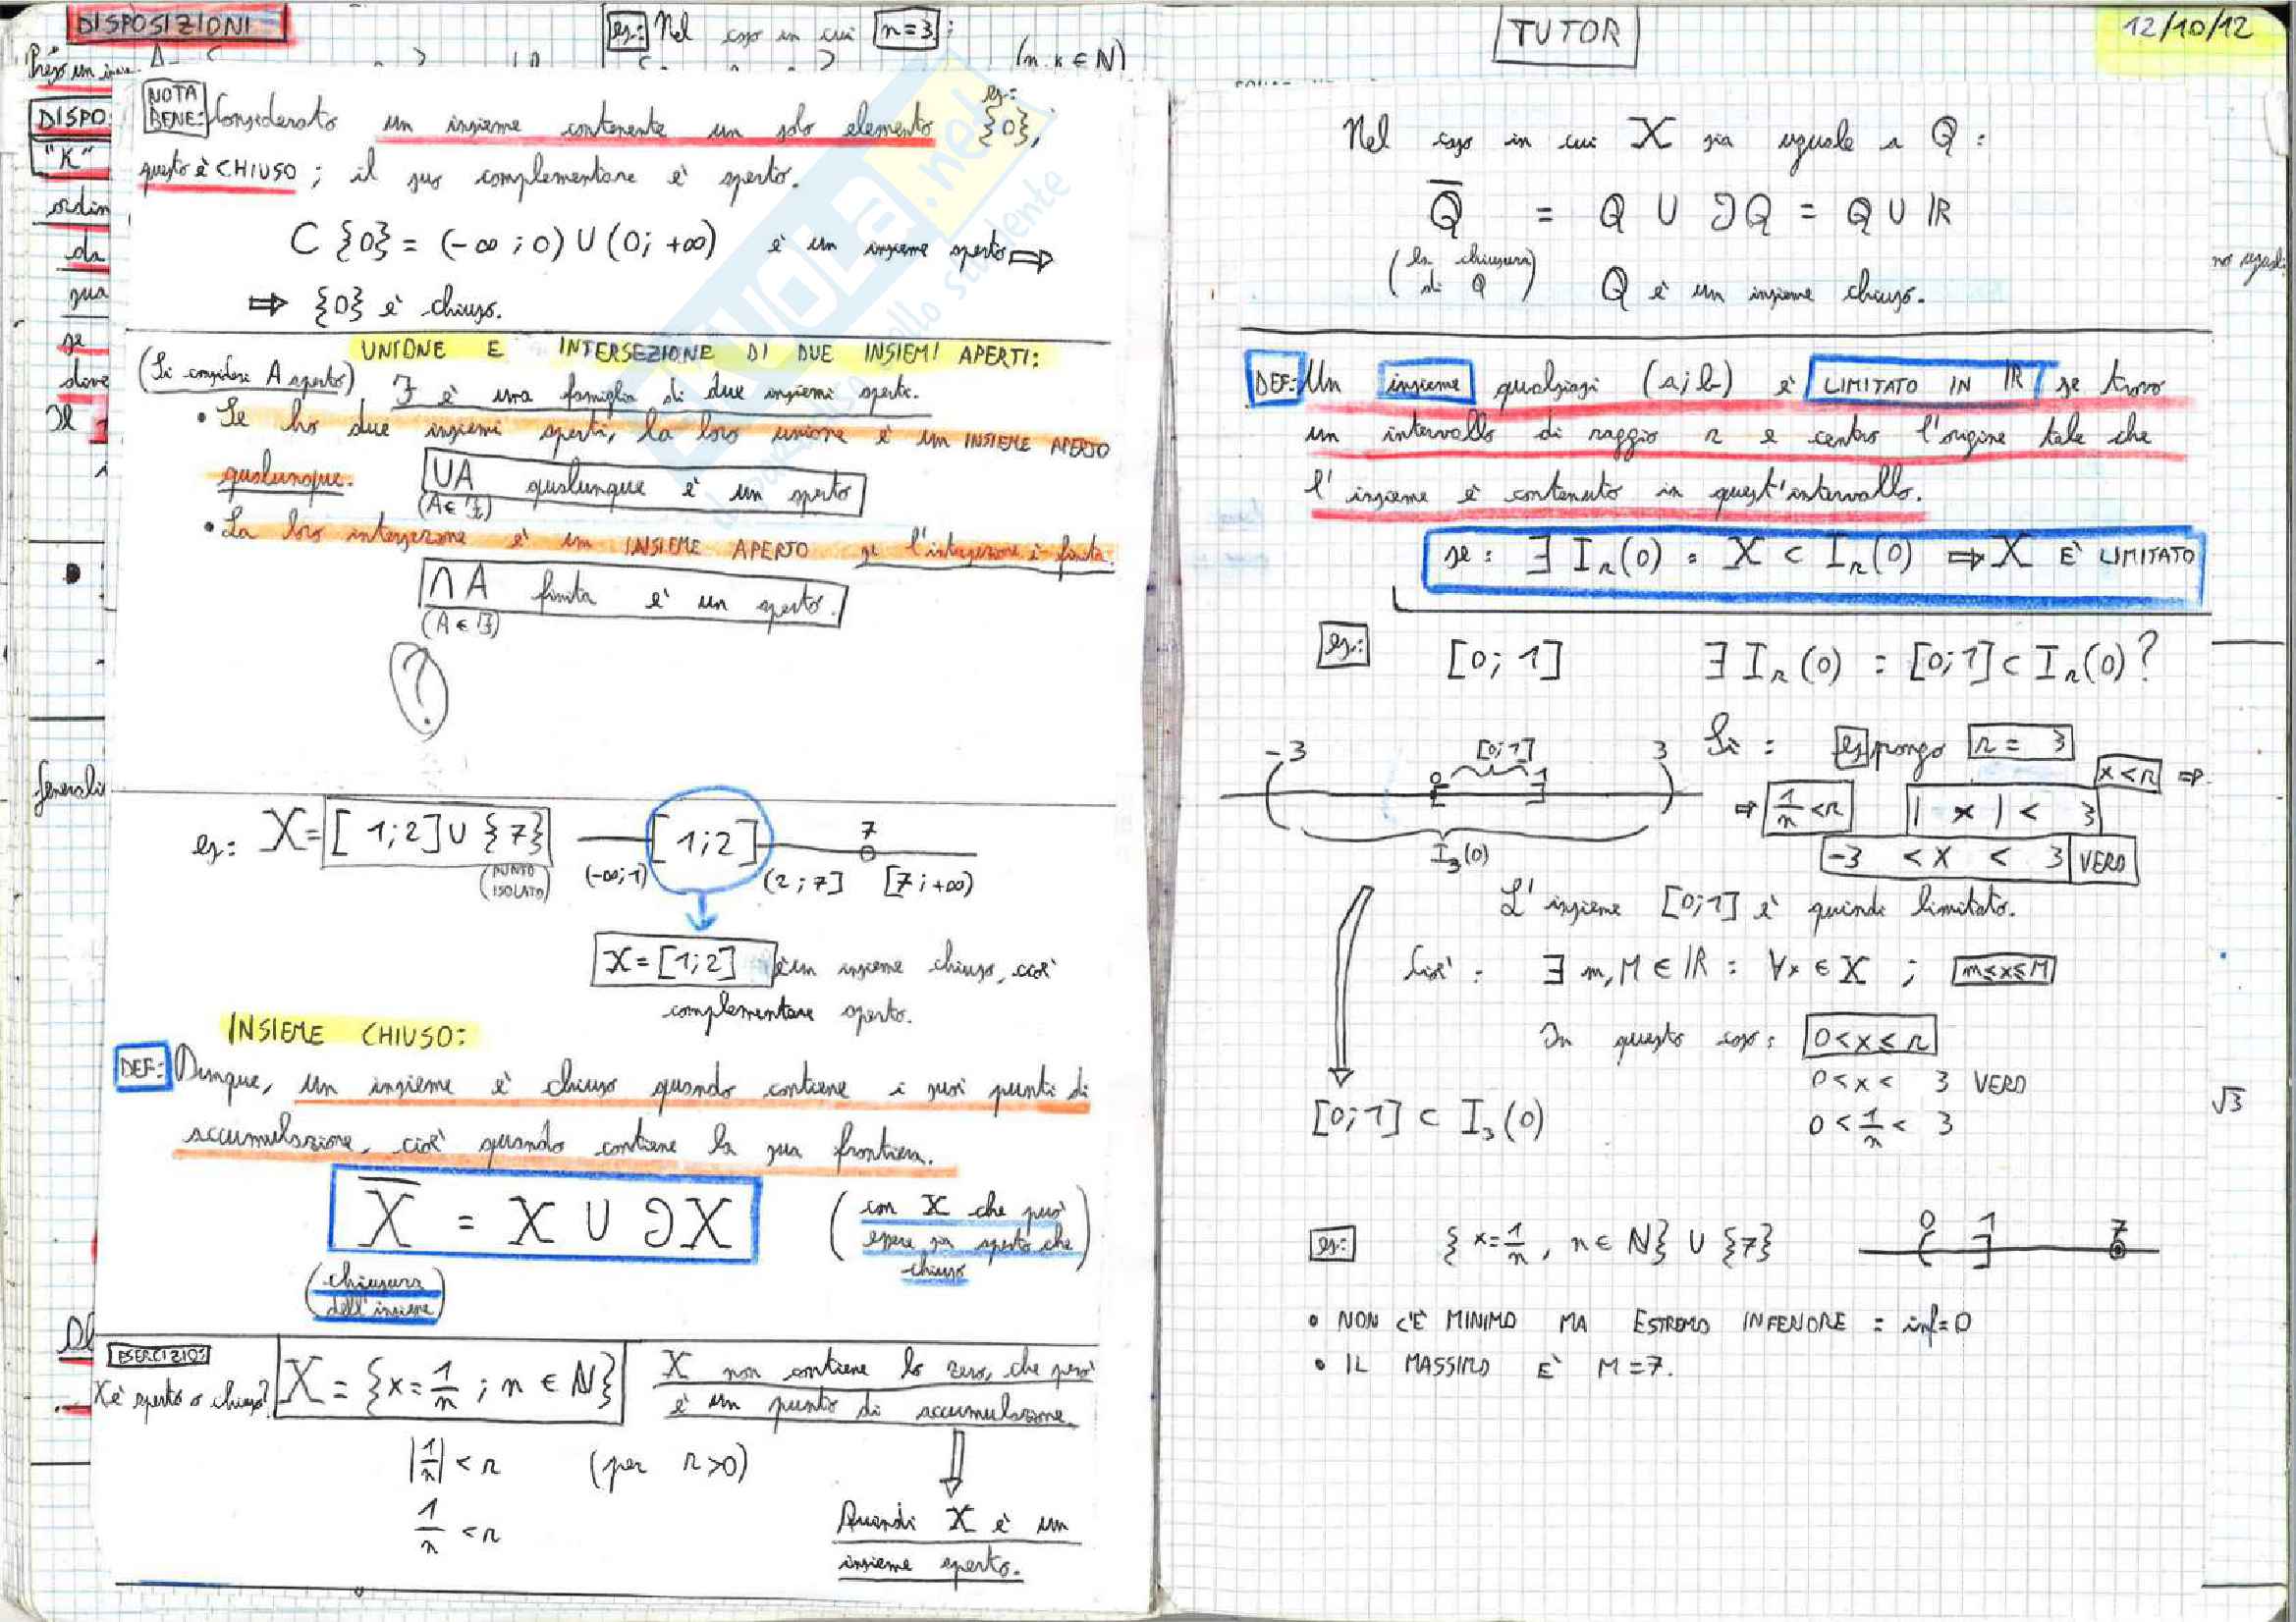 DISPOSIZIONI
es: Nel caso in cui n=3;
(n, k ∈ N)
Preso un
DISPO
"K"
ordin
da
sua
se
dove
Il
Generali
NOTA BENE: Considerato un insieme contenente un solo elemento es: {0},
questo è CHIUSO ; il suo complementare è aperto.
C {0} = (-∞ ; 0) U (0; +∞) è un insieme aperto ⇒
⇒ {0} è chiuso.
UNIONE E INTERSEZIONE DI DUE INSIEMI APERTI:
(Si consideri A aperto) F è una famiglia di due insiemi aperti.
• Se ho due insiemi aperti, la loro unione è un INSIEME APERTO
qualunque. UA qualunque è un aperto
(A∈ F)
• La loro intersezione è un INSIEME APERTO se l'intersezione è finita.
∩ A finita è un aperto.
(A ∈ F)
?
es: X = [ 1;2] U {7} [ 1;2] 7
(PUNTO ISOLATO) (-∞;1) (2 ; 7] [7 ; +∞)
X = [1;2] è un insieme chiuso, cioè
complementare aperto.
INSIEME CHIUSO:
DEF: Dunque, un insieme è chiuso quando contiene i suoi punti di
accumulazione, cioè quando contiene la sua frontiera.
X̅ = X U ∂X (con X che può essere sia aperto che chiuso)
(chiusura dell'insieme)
ESERCIZIO:
X è aperto o chiuso? X = {x = 1/n ; n ∈ N} X non contiene lo zero, che però
è un punto di accumulazione.
|1/n| < r (per r>0)
1/n < r
Quindi X è un
insieme aperto.
TUTOR
12/10/12
Nel caso in cui X sia uguale a Q :
Q̅ = Q U ∂Q = Q U R
(la chiusura di Q) Q è un insieme chiuso.
DEF: Un insieme qualsiasi (a;b) è LIMITATO IN R se trovo
un intervallo di raggio r e centro l'origine tale che
l'insieme è contenuto in quest'intervallo.
se : ∃ Ir(0) : X ⊂ Ir(0) ⇒ X E' LIMITATO
es: [0; 1] ∃ Ir(0) : [0;1] ⊂ Ir(0)?
Sì : es pongo r = 3
-3 [0;1] 3
0 1
x<r ⇒
⇒ 1/n < r | x | < 3
I3(0)
-3 < x < 3 VERO
L'insieme [0;1] è quindi limitato.
Cioè : ∃ m, M ∈ R : ∀x ∈ X ; m≤x≤M
In questo caso: 0<x≤r
0<x< 3 VERO
[0;1] ⊂ I3(0)
0 < 1/n < 3
√3
es: { x = 1/n , n ∈ N} U {7} 0 1 7
• NON C'È MINIMO MA ESTREMO INFERIORE = inf=0
• IL MASSIMO È M=7.